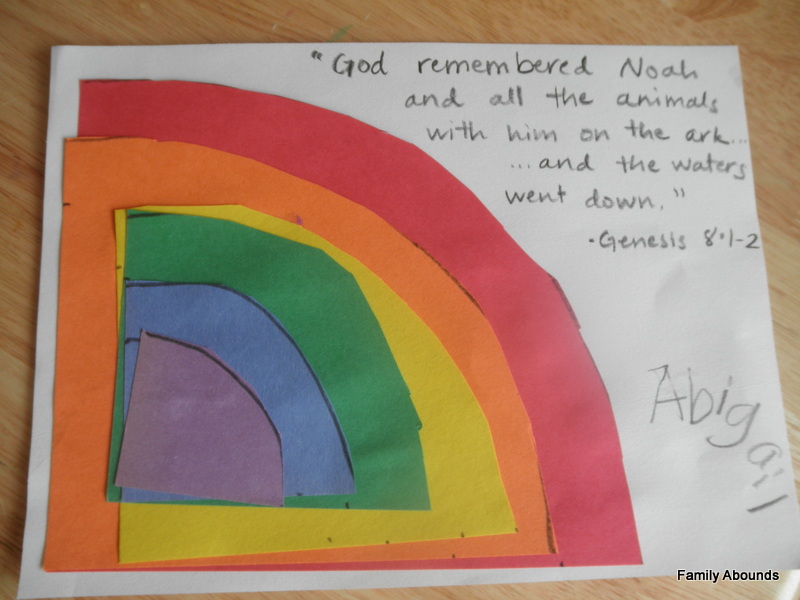 "God remembered Noah
and all the animals
with him on the ark...
...and the waters
went down."
·Genesis 8:1-2
Abigail
Family Abounds